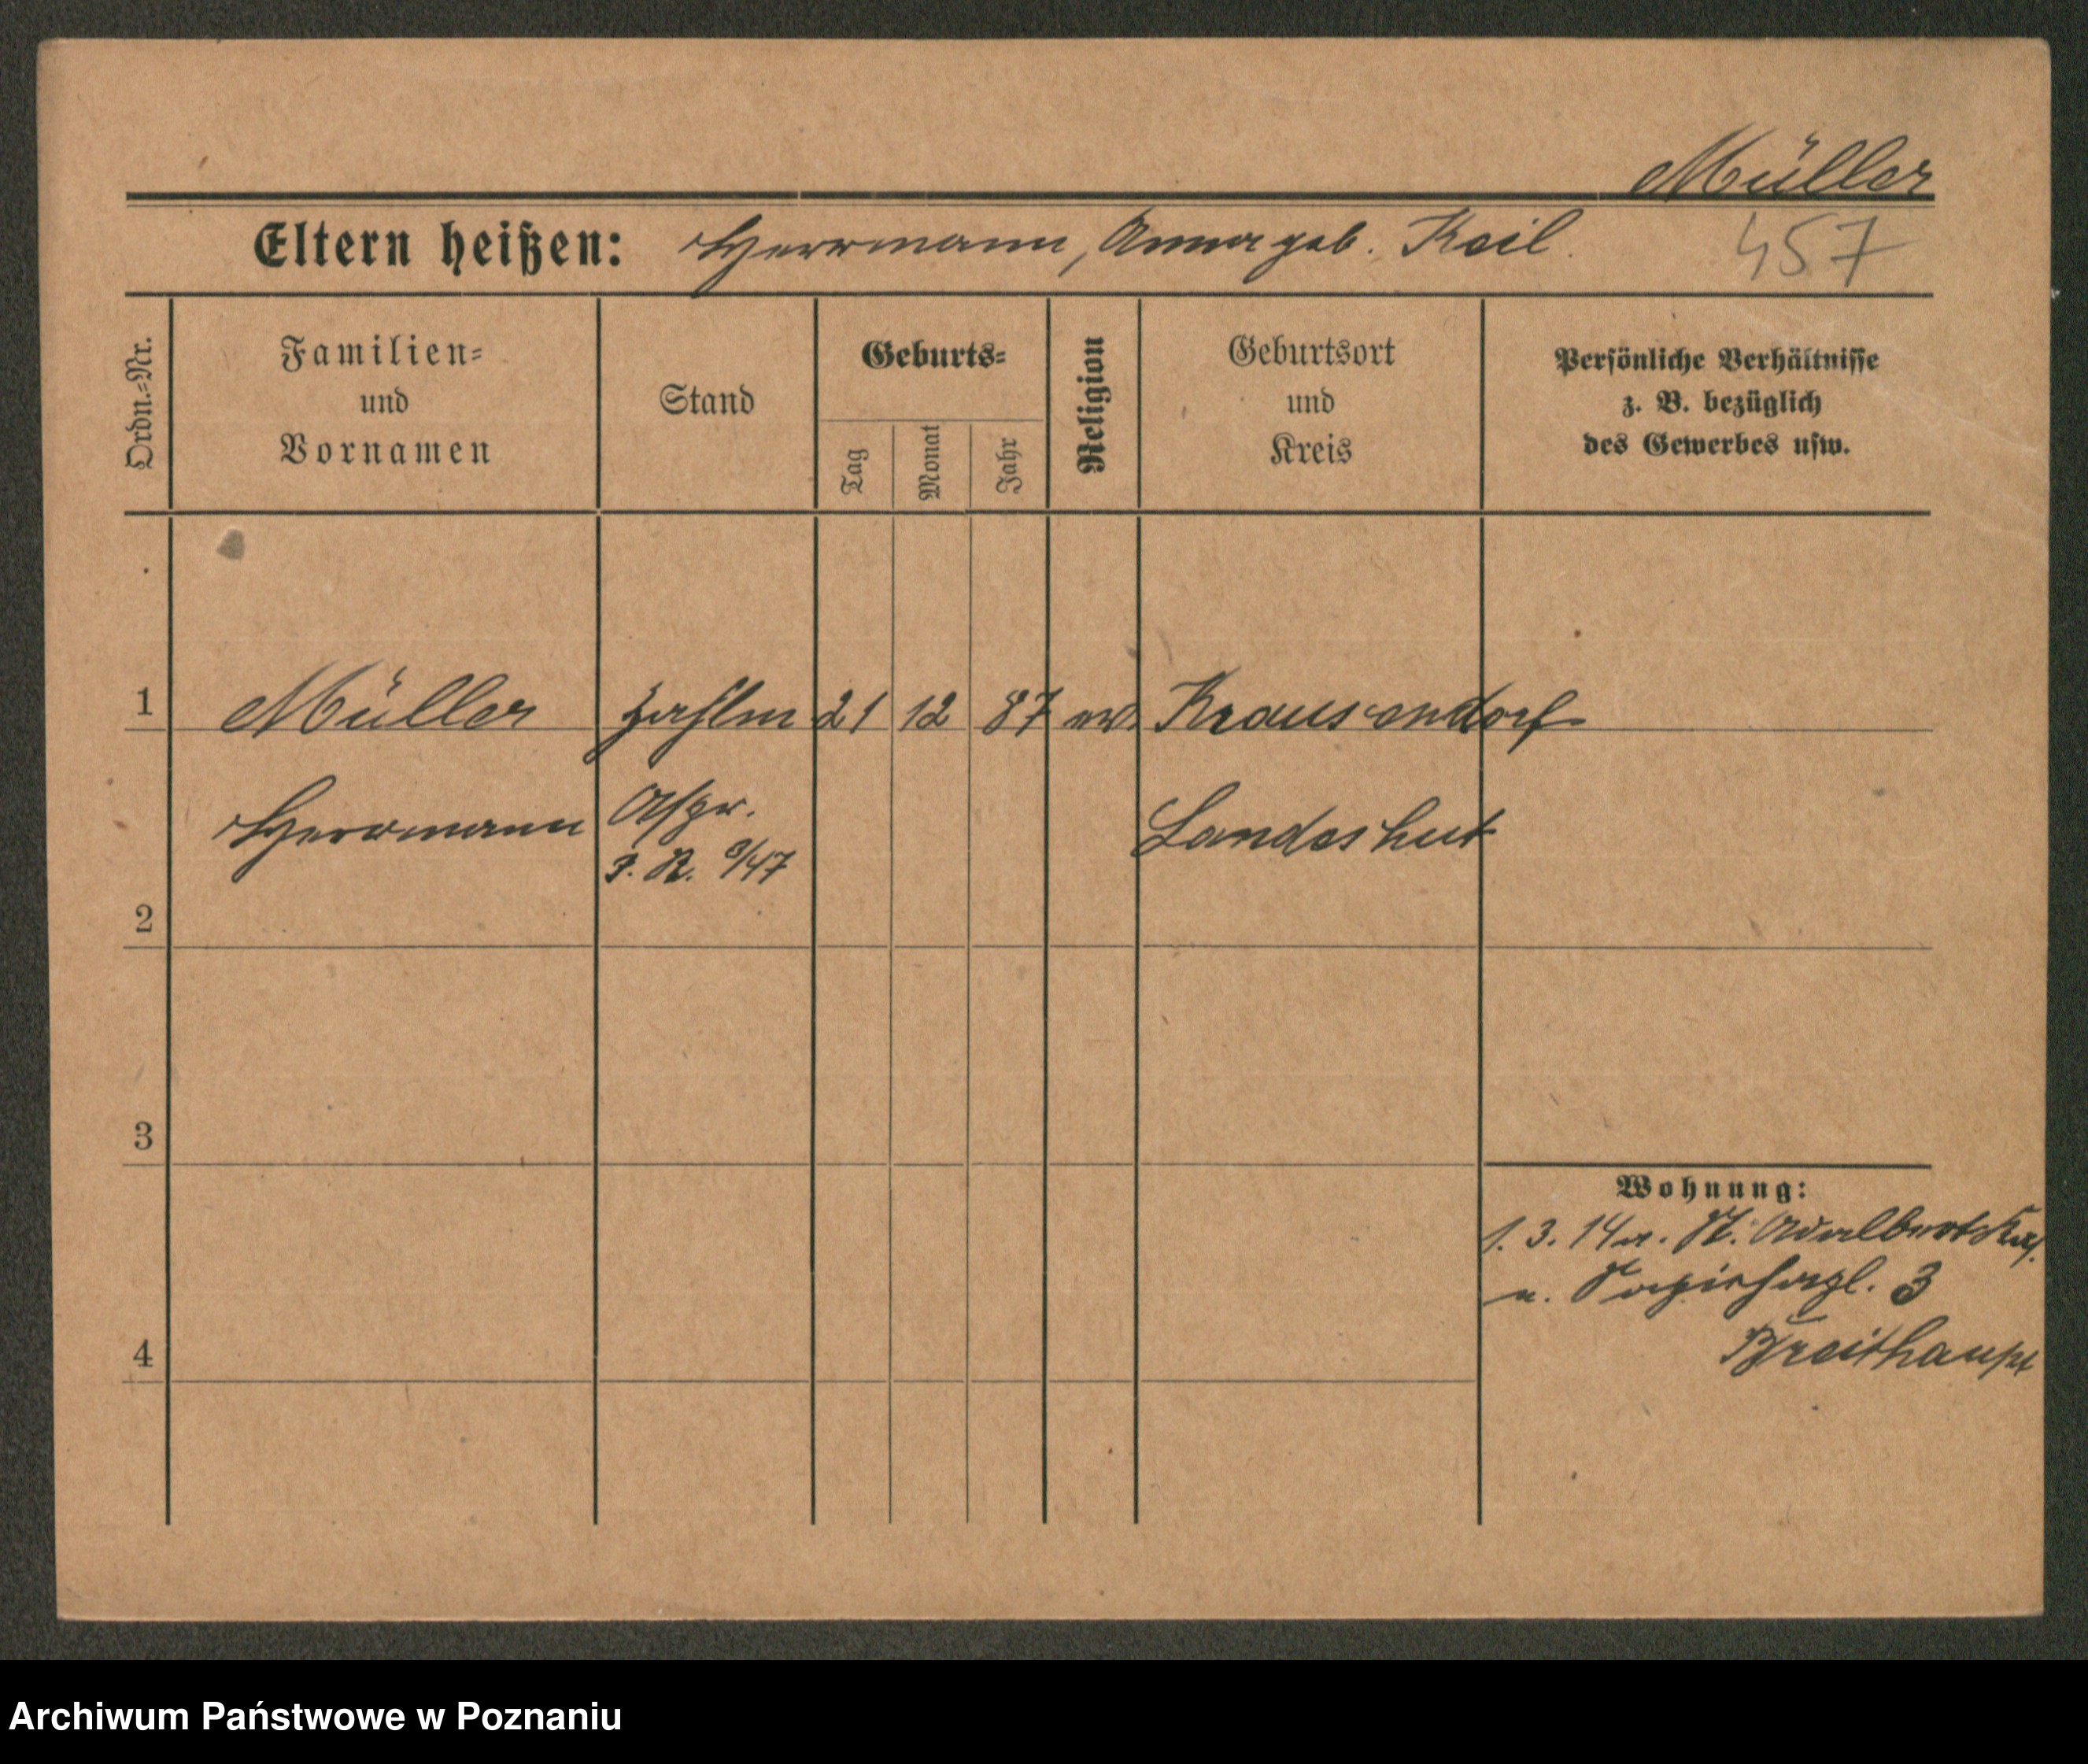 Müller
Eltern heißen: Herrmann, Anna geb. Keil.
457
Ordn.=Nr.
Familien=
und
Vornamen
Stand
Geburts=
Tag
Monat
Jahr
Religion
Geburtsort
und
Kreis
Persönliche Verhältnisse
z. B. bezüglich
des Gewerbes usw.
1 Müller Zahlm 21 12 87 ev. Krausendorf
Herrmann Aspr. Landeshut
I. R. /47
2
3
Wohnung:
1. 3. 14 a. St. Adalbert
u. 3
Breithaupt
4
Archiwum Państwowe w Poznaniu